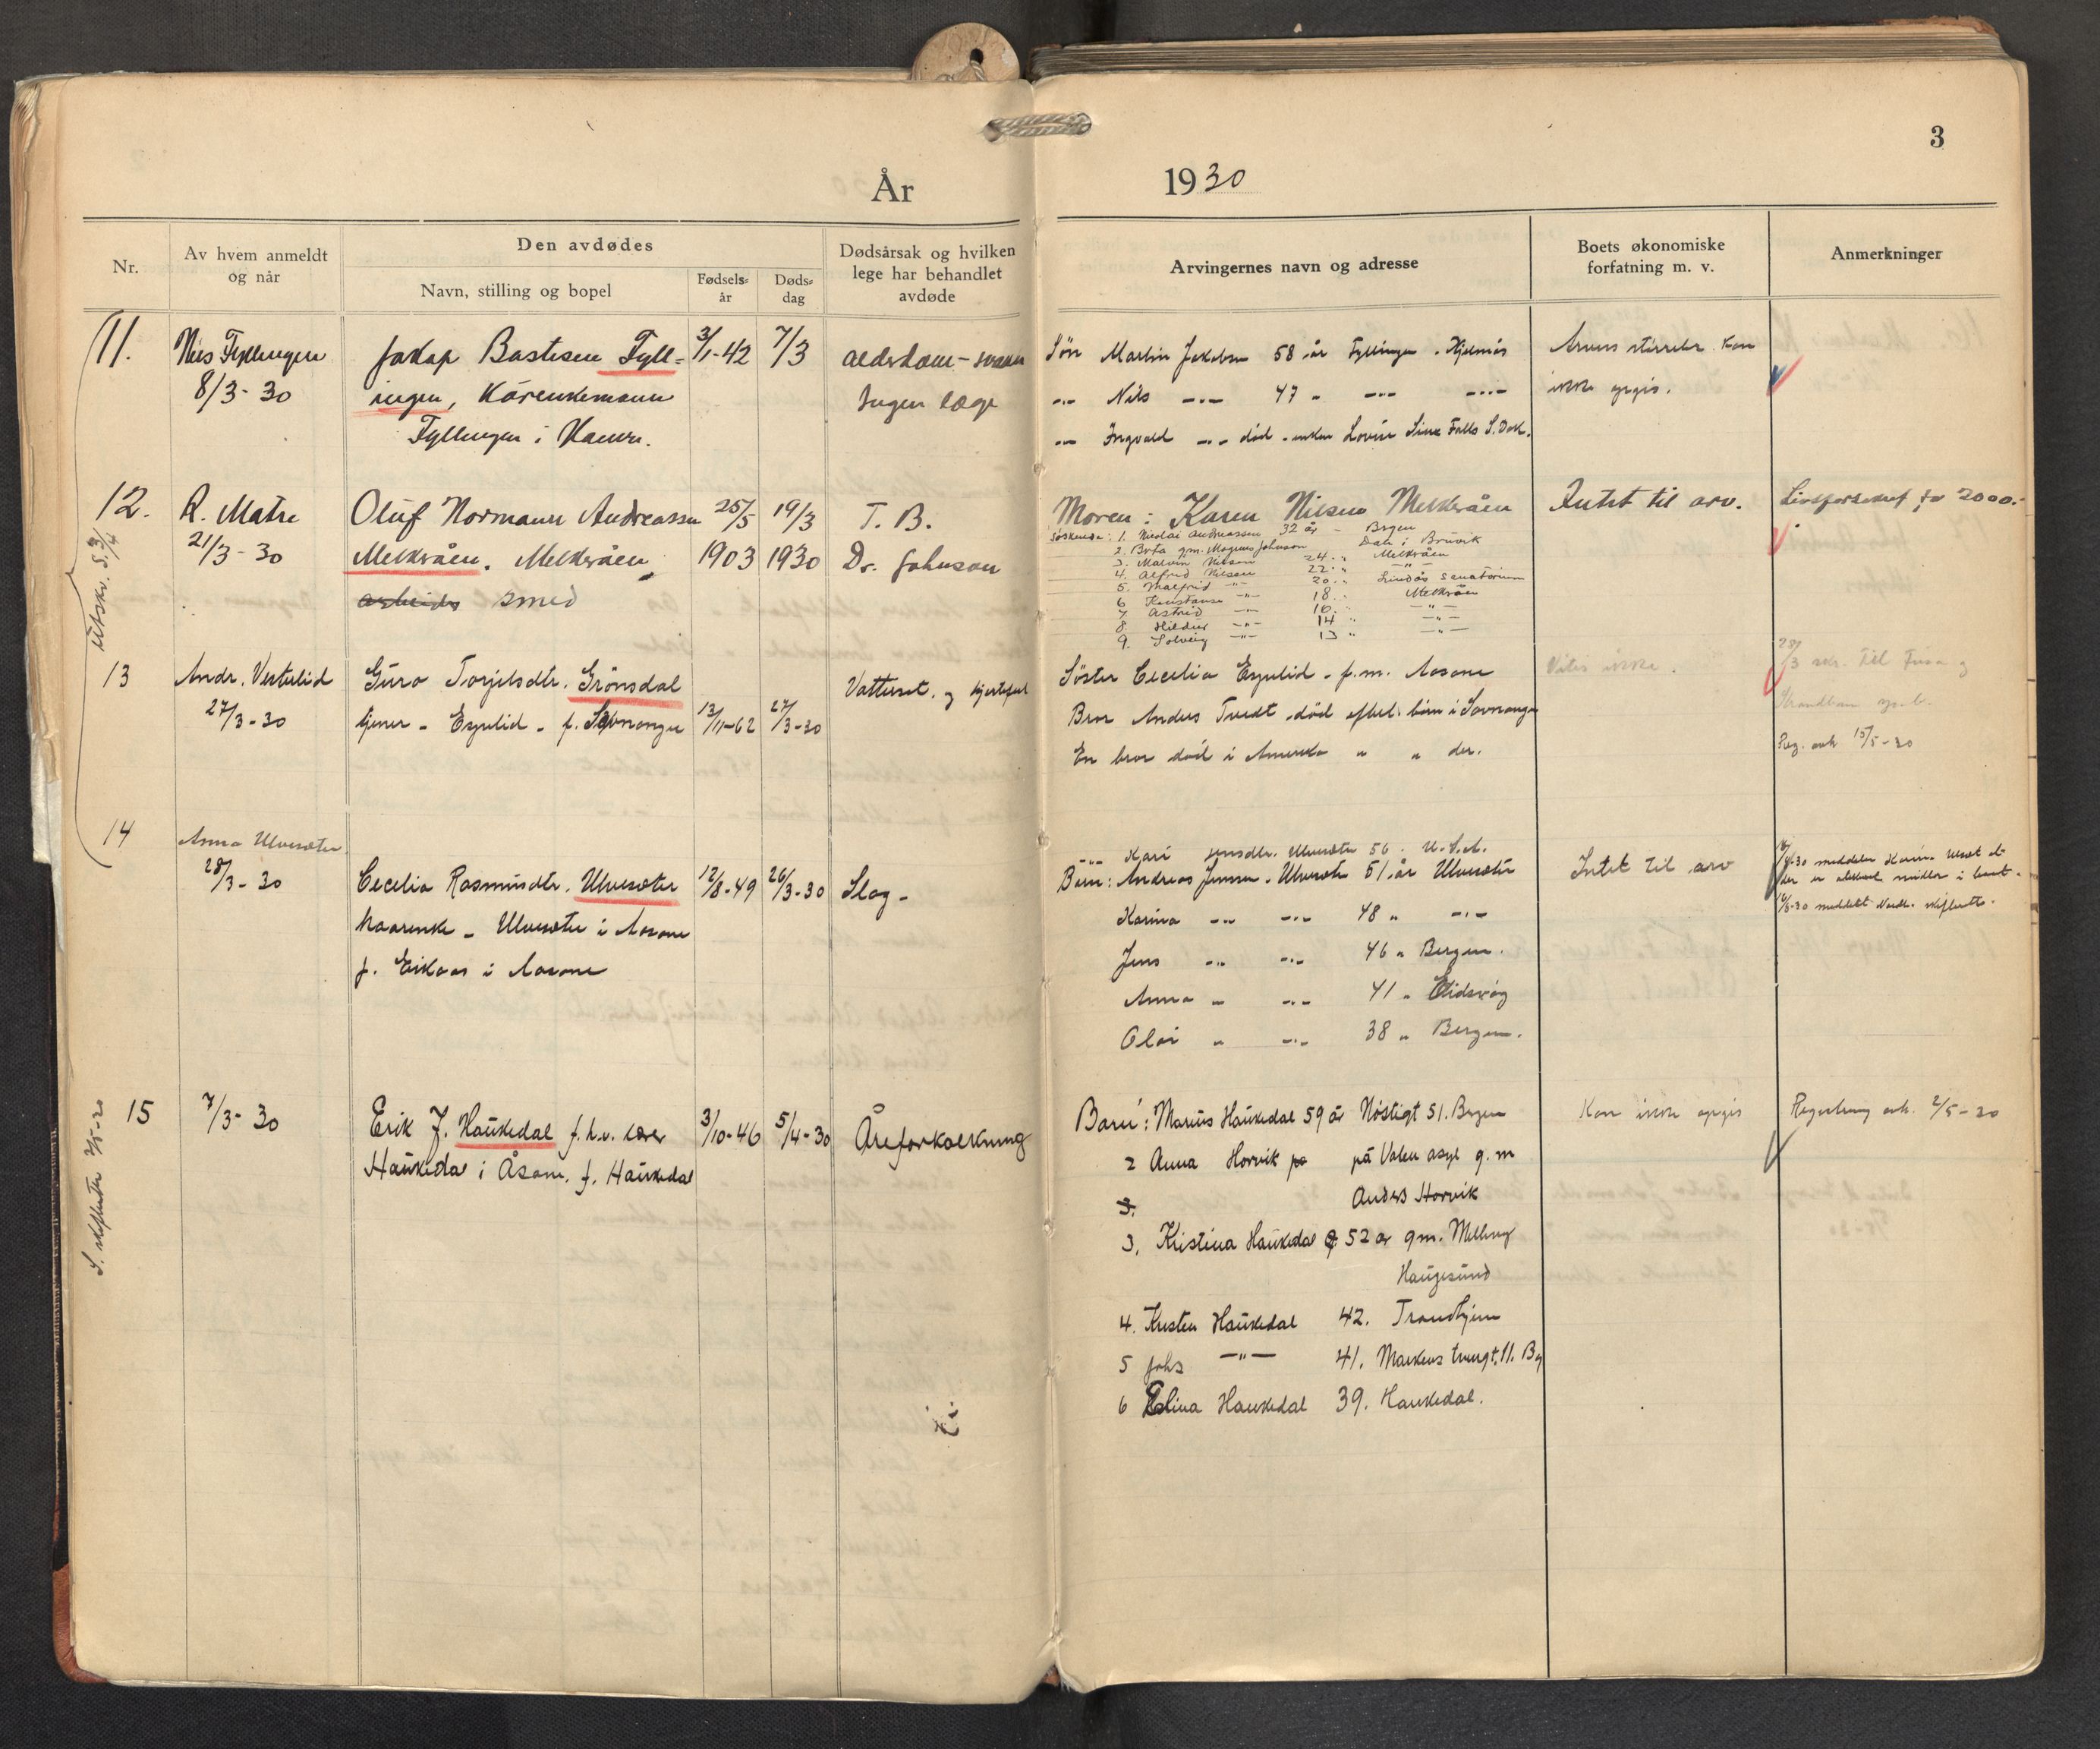 3
År 1930
Nr.
Av hvem anmeldt
og når
Den avdødes
Navn, stilling og bopel
Fødsels-
år
Døds-
dag
Dødsårsak og hvilken
lege har behandlet
avdøde
Arvingernes navn og adresse
Boets økonomiske
forfatning m. v.
Anmerkninger
11.
Nils Fyllingen
8/3-30
Jakop Bastesen Fyll-
ingen, Kårenkemann
Fyllingen i Hamre.
3/1-42
7/3
alderdom-
Ingen læge
Sön Martin Jakobsen 58 år Fyllingen . Hjelmås
-"- Nils -"- 47 " -"- -"-
-"- Ingvald -"- död - enken Sioux Falls S. Dak.
Arvens störrelse kan
ikke opgis.
12.
R. Matre
21/3-30
Oluf Normann Andreassen
Melkeråen. Melkeråen
arbeider smed
25/5
1903
19/3
1930
T. B.
Dr. Johnson
Moren: Karen Nilsen Melkeråen
Söskende: 1. Nicolai Andreassen 32 år - Bergen
2. Brta gm. Magnus Johnson Dale i Bruvik
3. Malvin Nilsen 24 " Melkråen
4. Alfred Nilsen 22 " -"-
5. Malfrid -"- 20 " Lindås Sanatorium
6 Konstanse -"- 18 " Melkråen
7 Astrid -"- 16 " -"-
8. Hildur -"- 14 " -"-
9. Solveig -"- 13 " -"-
Intet til arv.
2000.-
Utskr. S. 3/4
13
Andr. Vesterlid
27/3-30
Guro Torjilsdtr. Grönsdal
tjener - Espelid - f. Samnanger
13/11-62
27/3-30
Vattersot. og hjertefeil
Söster Cecelia Espelid - f.m. Aasane
Bror Anders Tvedt - död efterl. börn i Samnanger
En bror död i Amerika " " der.
Vites ikke.
28/3 skr. til Fusa og
Strandbarm
Reg. avh 15/5-30
14
Anna Ulvesæter.
28/3-30
Cecelia Rasmusdtr. Ulvesæter
kaarenke - Ulvesæter i Aasane
f. Eikaas i Aasane
12/8-49
26/3-30
Slag -
-"- Kari Jensdtr. Ulvesæter 56 . U.S.A.
Barn: Andreas Jensen - Ulvesæter 51 år Ulvesæter
Karina -"- -"- 48 " -"-
Jens -"- -"- 46 " Bergen.
Anna " -"- 41 " Eidsvåg
Olai " -"- 38 " Bergen.
Intet til arv
meddeler Karina
der er midler i boet.
meddelt skifterett.
S. skifteretten 2/5-30
15
7/3-30
Erik J. Haukedal f.h.v. lærer
Haukedal i Åsane. f. Haukedal
3/10-46
5/4-30
Åreforkalkning
Barn: Marius Haukedal 59 år Nöstegt 51. Bergen
2 Anna Horvik på på Valen asyl g. m
Anders Horvik
3.
3. Kristina Haukedal 52 år gm. Melling
Haugesund
4. Kristen Haukedal 42. Trondhjem
5 Johs -"- 41. Markens 11. Bg
6 Elina Haukedal 39. Haukedal.
Kan ikke opgis
Registrering avh. 2/5-30